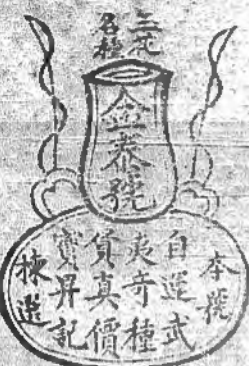 三花
名種
金泰號
本號
自運武
夷奇種
貨真價
實昇記
揀選